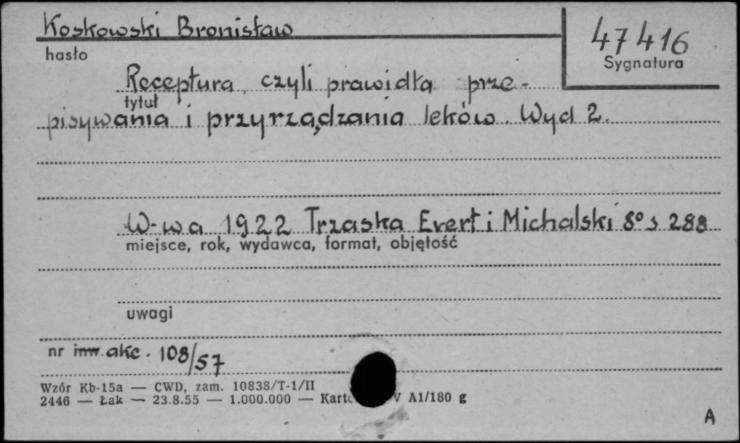 Koskowski Bronisław
47416
hasło
Sygnatura
Receptura czyli prawidła prze-
tytuł
pisywania i przyrządzania leków. Wyd 2.
W-wa 1922 Trzaska Evert i Michalski 8° s 288
miejsce, rok, wydawca, format, objętość
uwagi
nr inw. akc. 108/57
Wzór Kb-15a — CWD, zam. 10838/T-1/II
2446 — Łak — 23.8.55 — 1.000.000 — Kart V A1/180 g
A